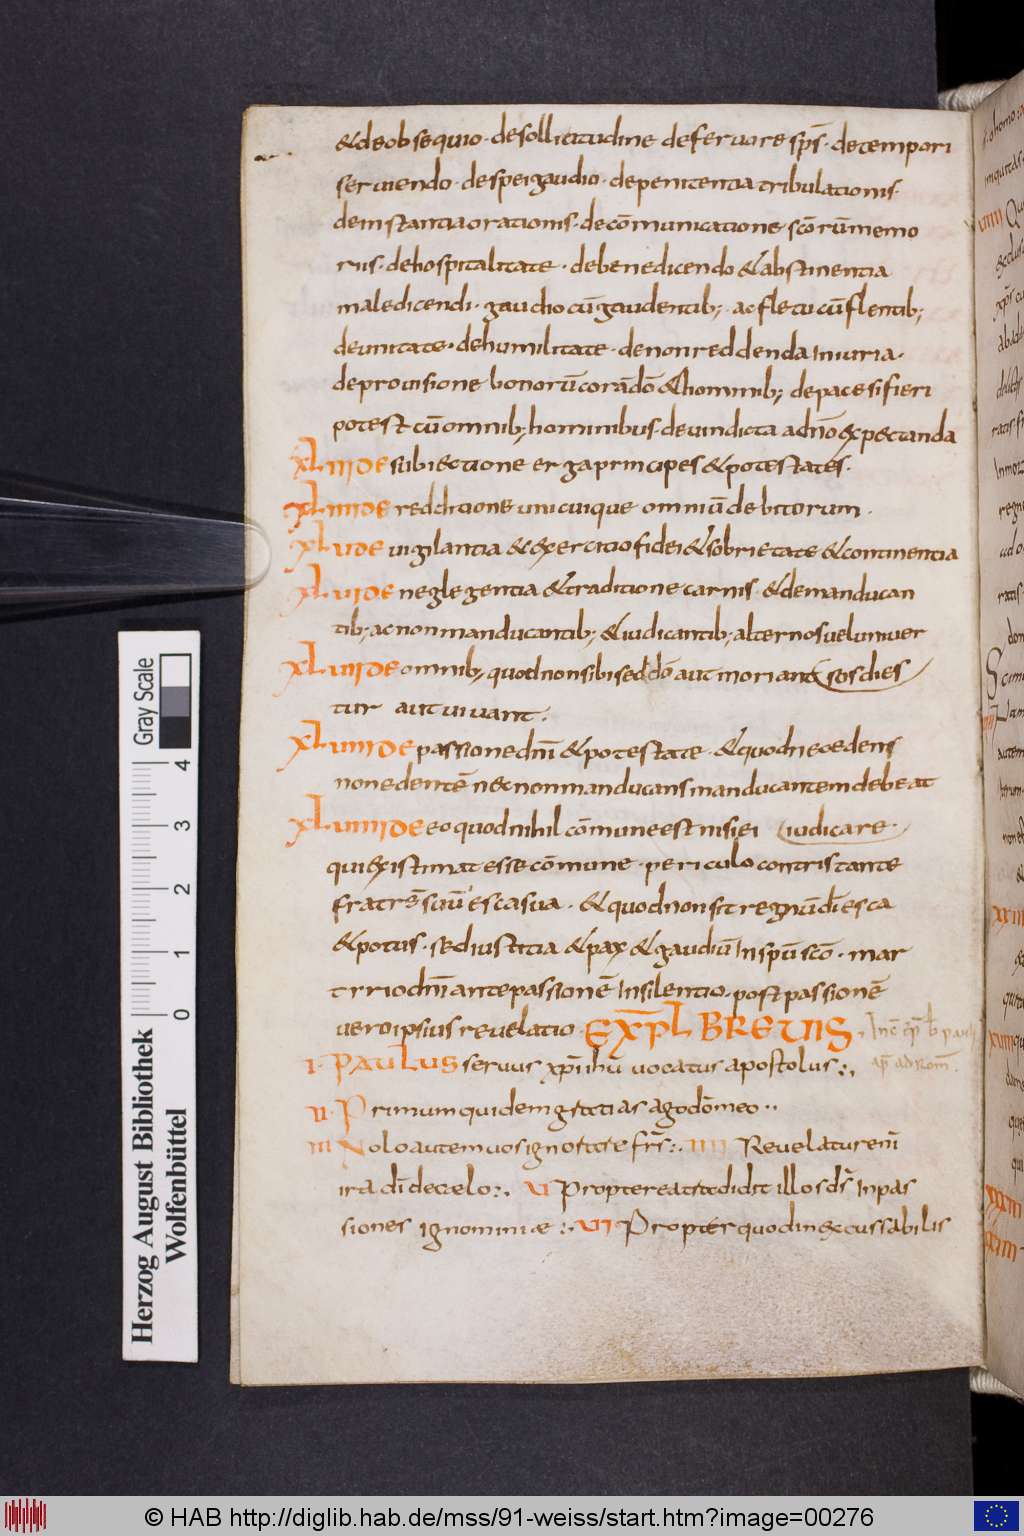 & de obsequio · de sollicitudine de feruore sp̄s · de tempori
seruiendo · de spei gaudio · de penitentia tribulationis ·
de instantia orationis · de cōmunicatione sc̄orū memo
riis · de hospitalitate · de benedicendo & abstinentia
maledicendi · gaudio cū gaudentib; · ac fletu cū flentib;
de unitate · de humilitate · de non reddenda iniuria ·
de prouisione bonorū corā dō & hominib; de pace si fieri
potest cū omnib; hominibus · de uindicta a dn̄o expectanda
XLIII DE subiectione erga principes & potestates ·
XLIIII DE redditione unicuique omniū debitorum ·
XLV DE uigilantia & exercitio fidei & sobrietate & continentia
XLVI DE neglegentia & traditione carnis · & de manducan
tib; ac non manducantib; & iudicantib; alternos uel uniuer
XLVII DE omnib; quod non sibi sed dō aut moriant sos dies
tur aut uiuant ·
XLVIII DE passione dn̄i & potestate · & quod nec edens
non edentē nec non manducans manducantem debeat
XLVIIII DE eo quod nihil cōmune est nisi ei iudicare ·
qui existimat esse cōmune · periculo contristante
fratrē suū esca sua · & quod non sit regnū di esca
& potus · sed iustitia & pax & gaudiū in spū scō · mar
tyrio dn̄i ante passionē in silentio · post passionē
uero ipsius reuelatio · EXPL BREVIS
I · PAULUS seruus xp̄i ihū uocatus apostolus :,
II · Primum quidem gratias ago dō meo ··
III Nolo autem uos ignorare frs̄ :. IIII Reuelatur enī
ira di de celo :. V Propterea tradidit illos ds̄ in pas
siones ignominiae :. VI Propter quod inexcussabilis
Herzog August Bibliothek
Wolfenbüttel
Gray Scale
0 1 2 3 4
© HAB http://diglib.hab.de/mss/91-weiss/start.htm?image=00276